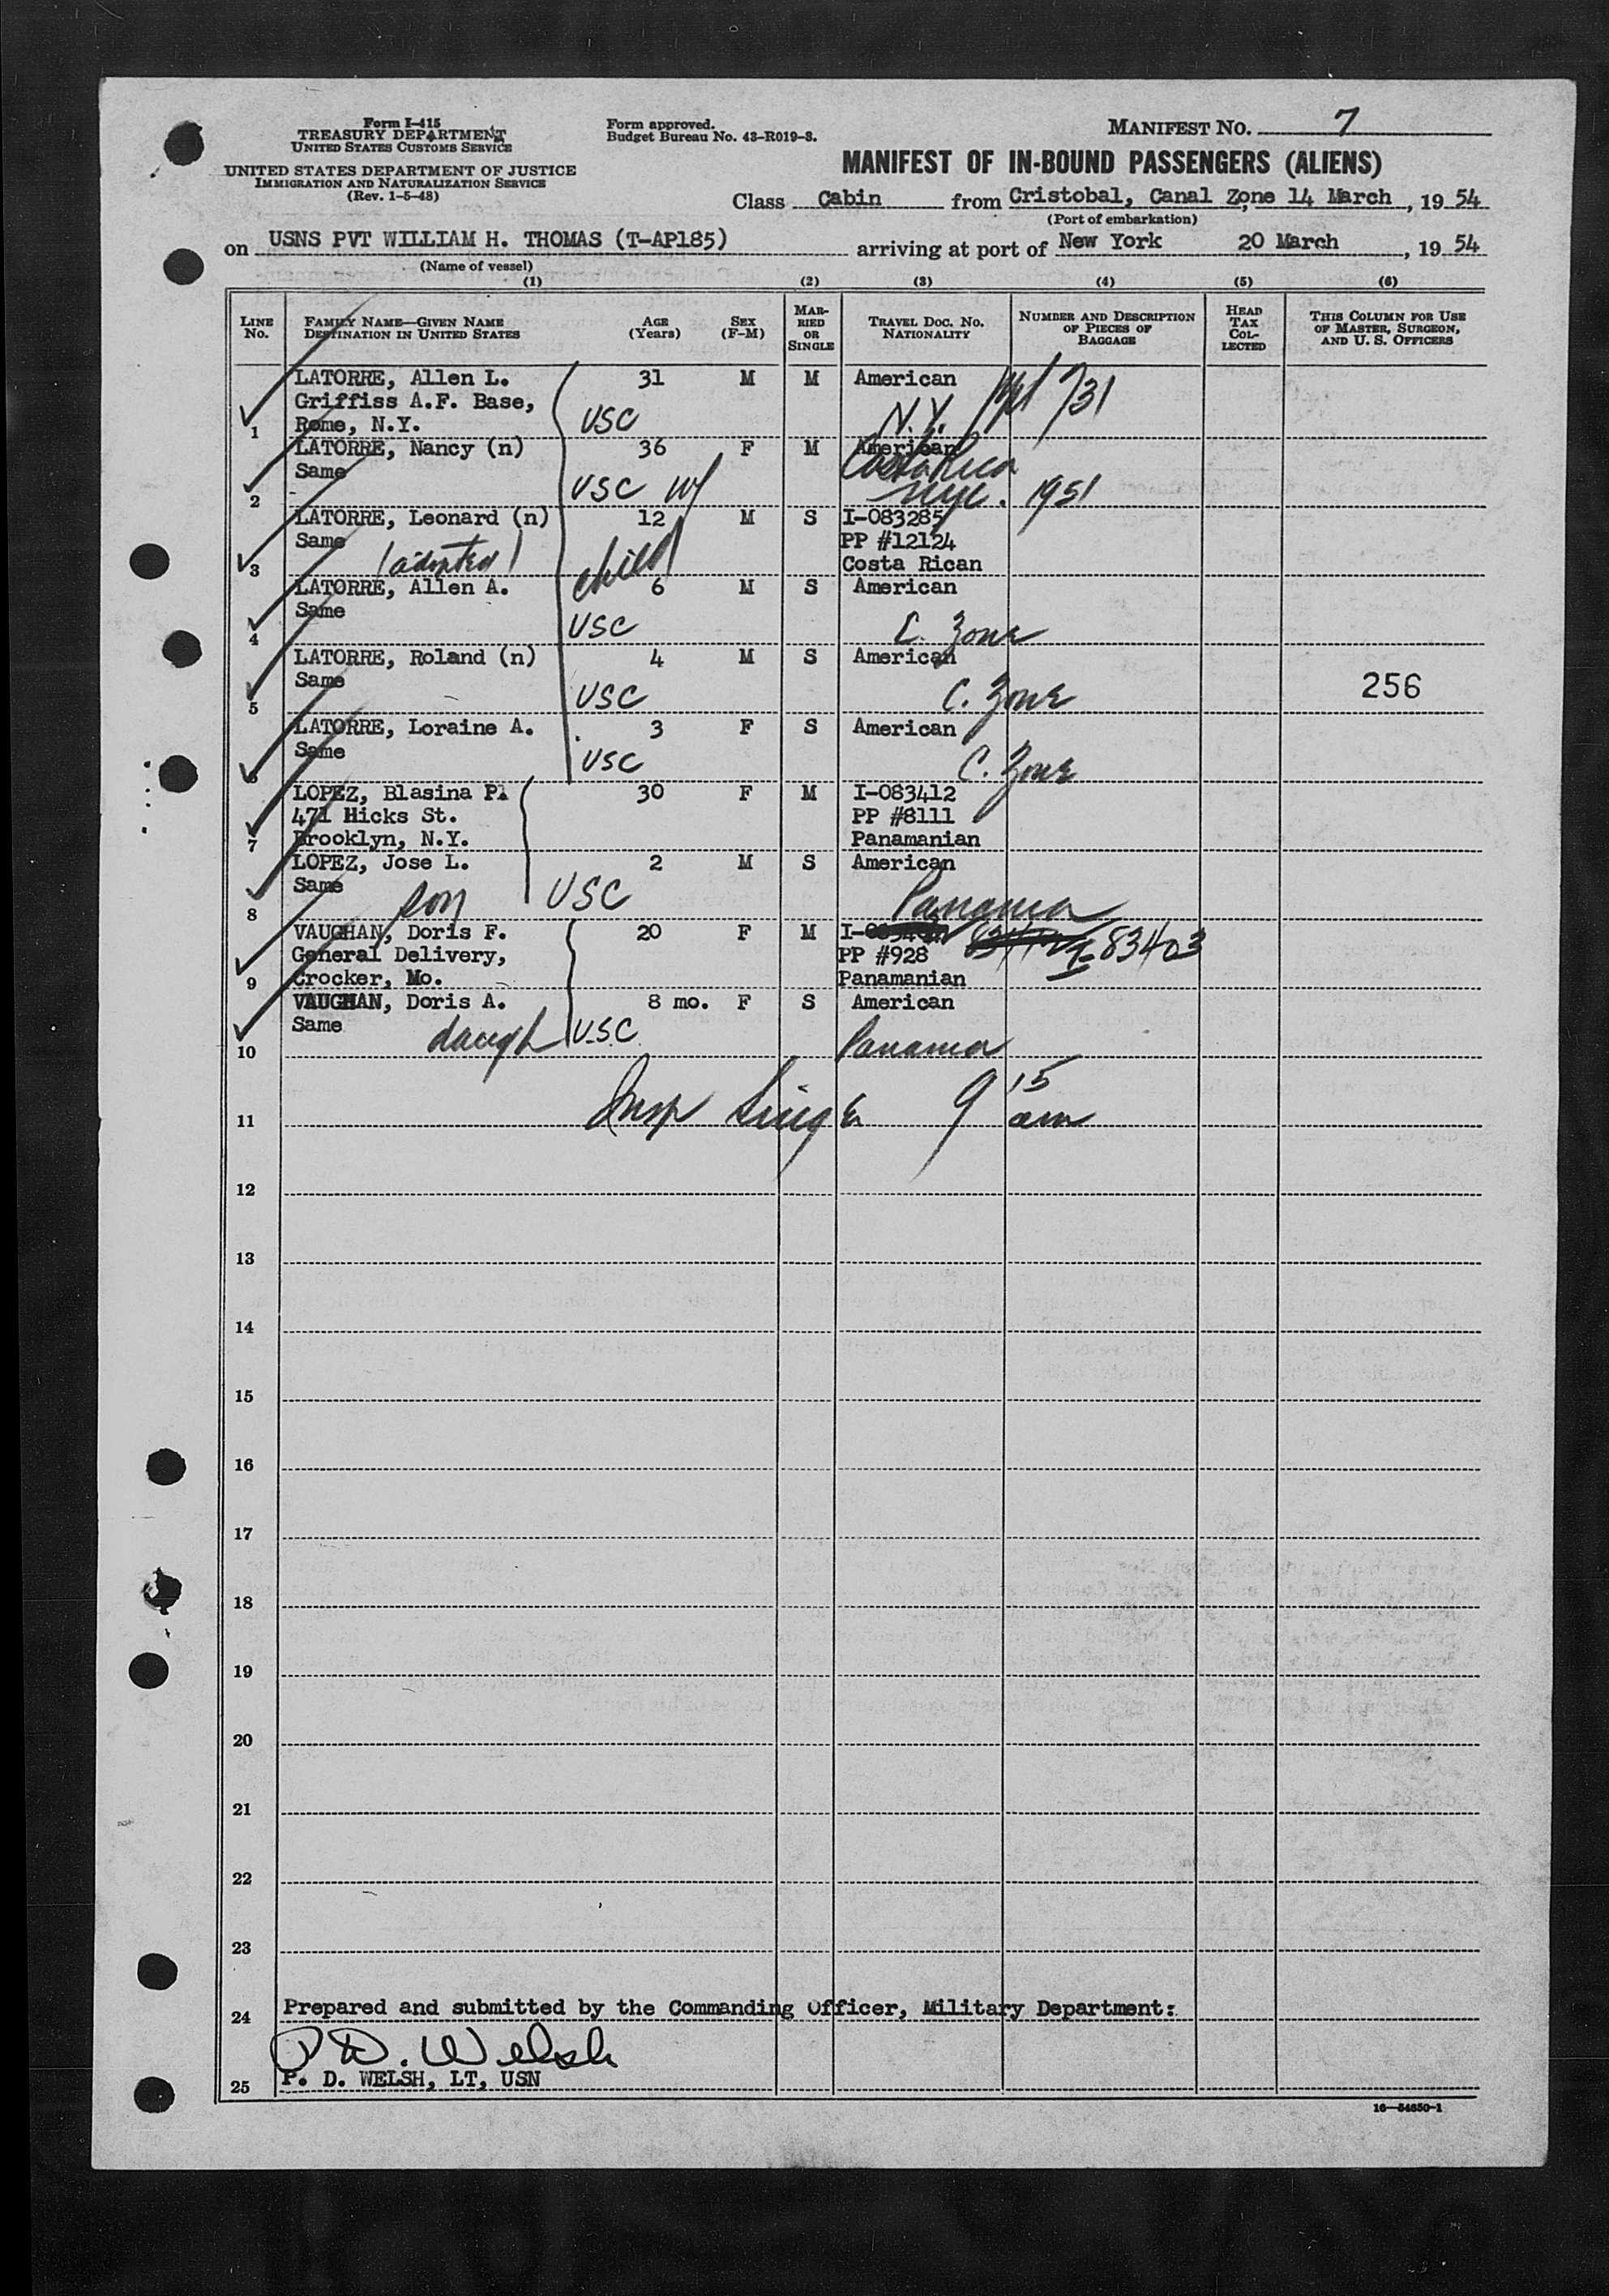 Form I-415
TREASURY DEPARTMENT
UNITED STATES CUSTOMS SERVICE
UNITED STATES DEPARTMENT OF JUSTICE
IMMIGRATION AND NATURALIZATION SERVICE
(Rev. 1-5-48)
Form approved.
Budget Bureau No. 43-R019-3.
MANIFEST NO. 7
MANIFEST OF IN-BOUND PASSENGERS (ALIENS)
Class Cabin from Cristobal, Canal Zone, 14 March, 19 54
(Port of embarkation)
on USNS PVT WILLIAM H. THOMAS (T-AP185) arriving at port of New York 20 March, 19 54
(Name of vessel)
(1) (2) (3) (4) (5) (6)
LINE No.
FAMILY NAME—GIVEN NAME
DESTINATION IN UNITED STATES
AGE (Years)
SEX (F-M)
MARRIED OR SINGLE
TRAVEL DOC. NO. NATIONALITY
NUMBER AND DESCRIPTION OF PIECES OF BAGGAGE
HEAD TAX COLLECTED
THIS COLUMN FOR USE OF MASTER, SURGEON, AND U. S. OFFICERS
LATORRE, Allen L. 31 M M American
Griffiss A.F. Base,
1 Rome, N.Y. USC N.Y.
LATORRE, Nancy (n) 36 F M American
Same Costa Rica
2 USC w/ nyc. 1951
LATORRE, Leonard (n) 12 M S I-083285
Same PP #12124
3 (adopted) child Costa Rican
LATORRE, Allen A. 6 M S American
Same
4 USC C. Zone
LATORRE, Roland (n) 4 M S American
Same 256
5 USC C. Zone
LATORRE, Loraine A. 3 F S American
Same
6 USC C. Zone
LOPEZ, Blasina P. 30 F M I-083412
471 Hicks St. PP #8111
7 Brooklyn, N.Y. Panamanian
LOPEZ, Jose L. 2 M S American
Same
8 son USC Panama
VAUGHAN, Doris F. 20 F M
General Delivery, PP #928 I-83403
9 Crocker, Mo. Panamanian
VAUGHAN, Doris A. 8 mo. F S American
Same
10 daugh U.S.C. Panama
11 Insp 9 15 am
12
13
14
15
16
17
18
19
20
21
22
23
24 Prepared and submitted by the Commanding Officer, Military Department:
P D. Welsh
25 P. D. WELSH, LT, USN
16—54650-1